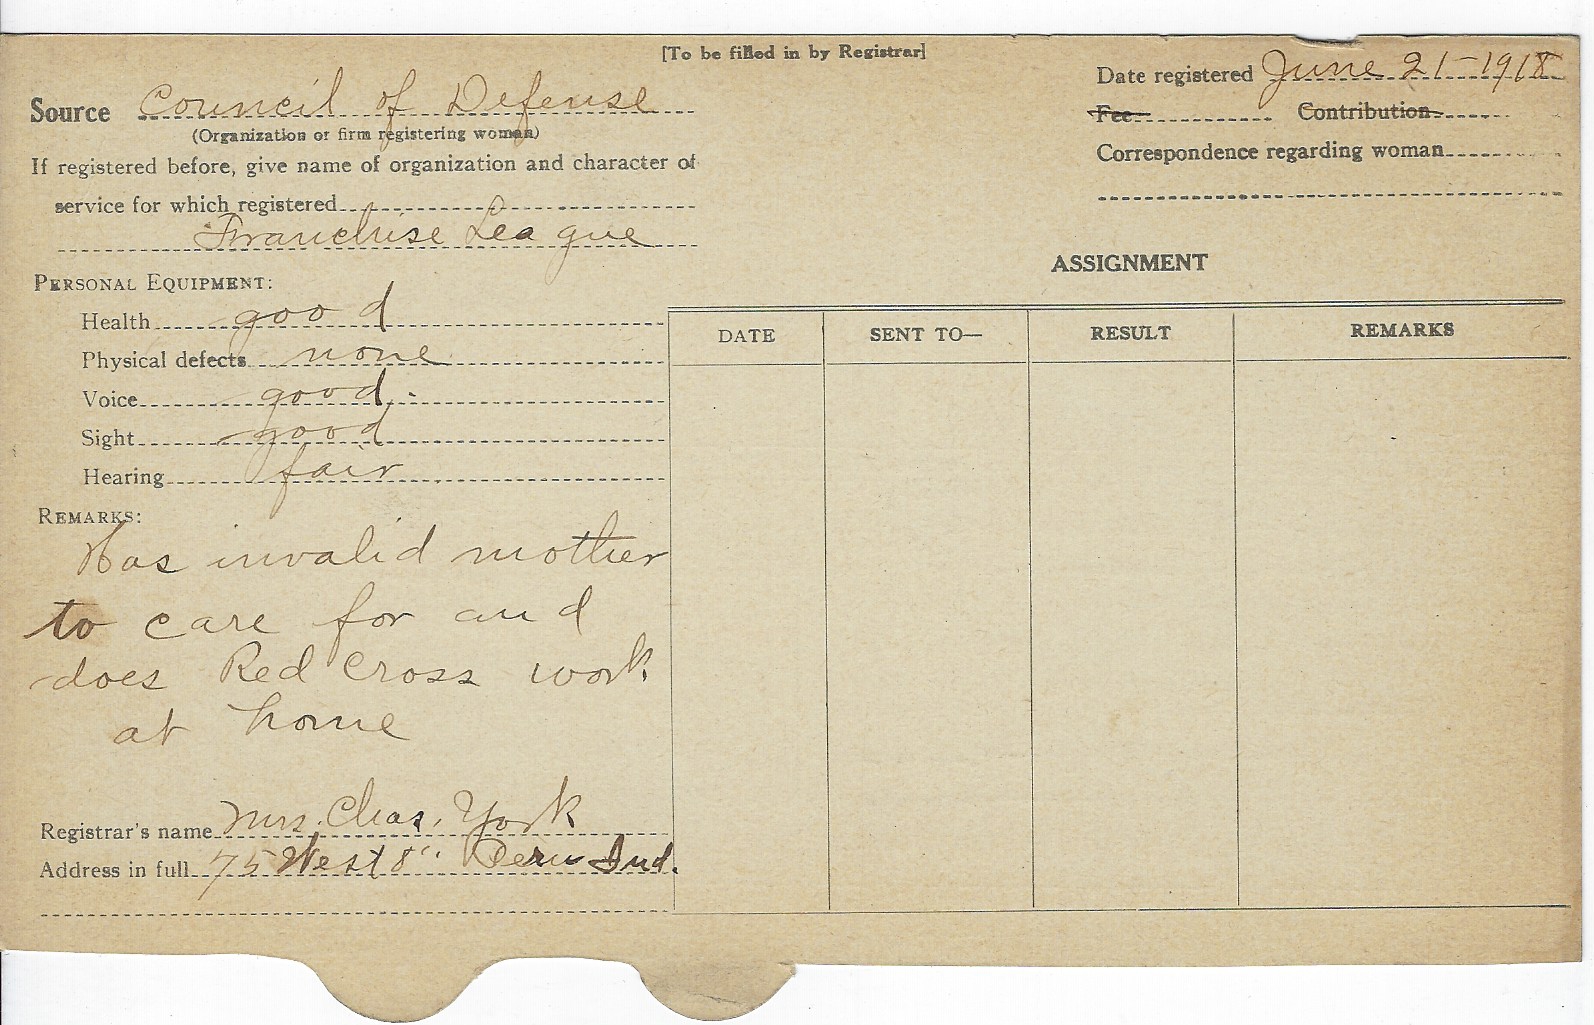 [To be filled in by Registrar]
Date registered June 21-1918
Source Council of Defense
(Organization or firm registering woman)
Fee Contribution
If registered before, give name of organization and character of
Correspondence regarding woman
service for which registered
Franchise League
ASSIGNMENT
PERSONAL EQUIPMENT:
Health good
Physical defects none
Voice good
Sight good
Hearing fair
DATE SENT TO— RESULT REMARKS
REMARKS:
Has invalid mother
to care for and
does Red Cross work
at home
Registrar's name Mrs. Chas. York
Address in full 75 West 8" Peru Ind.